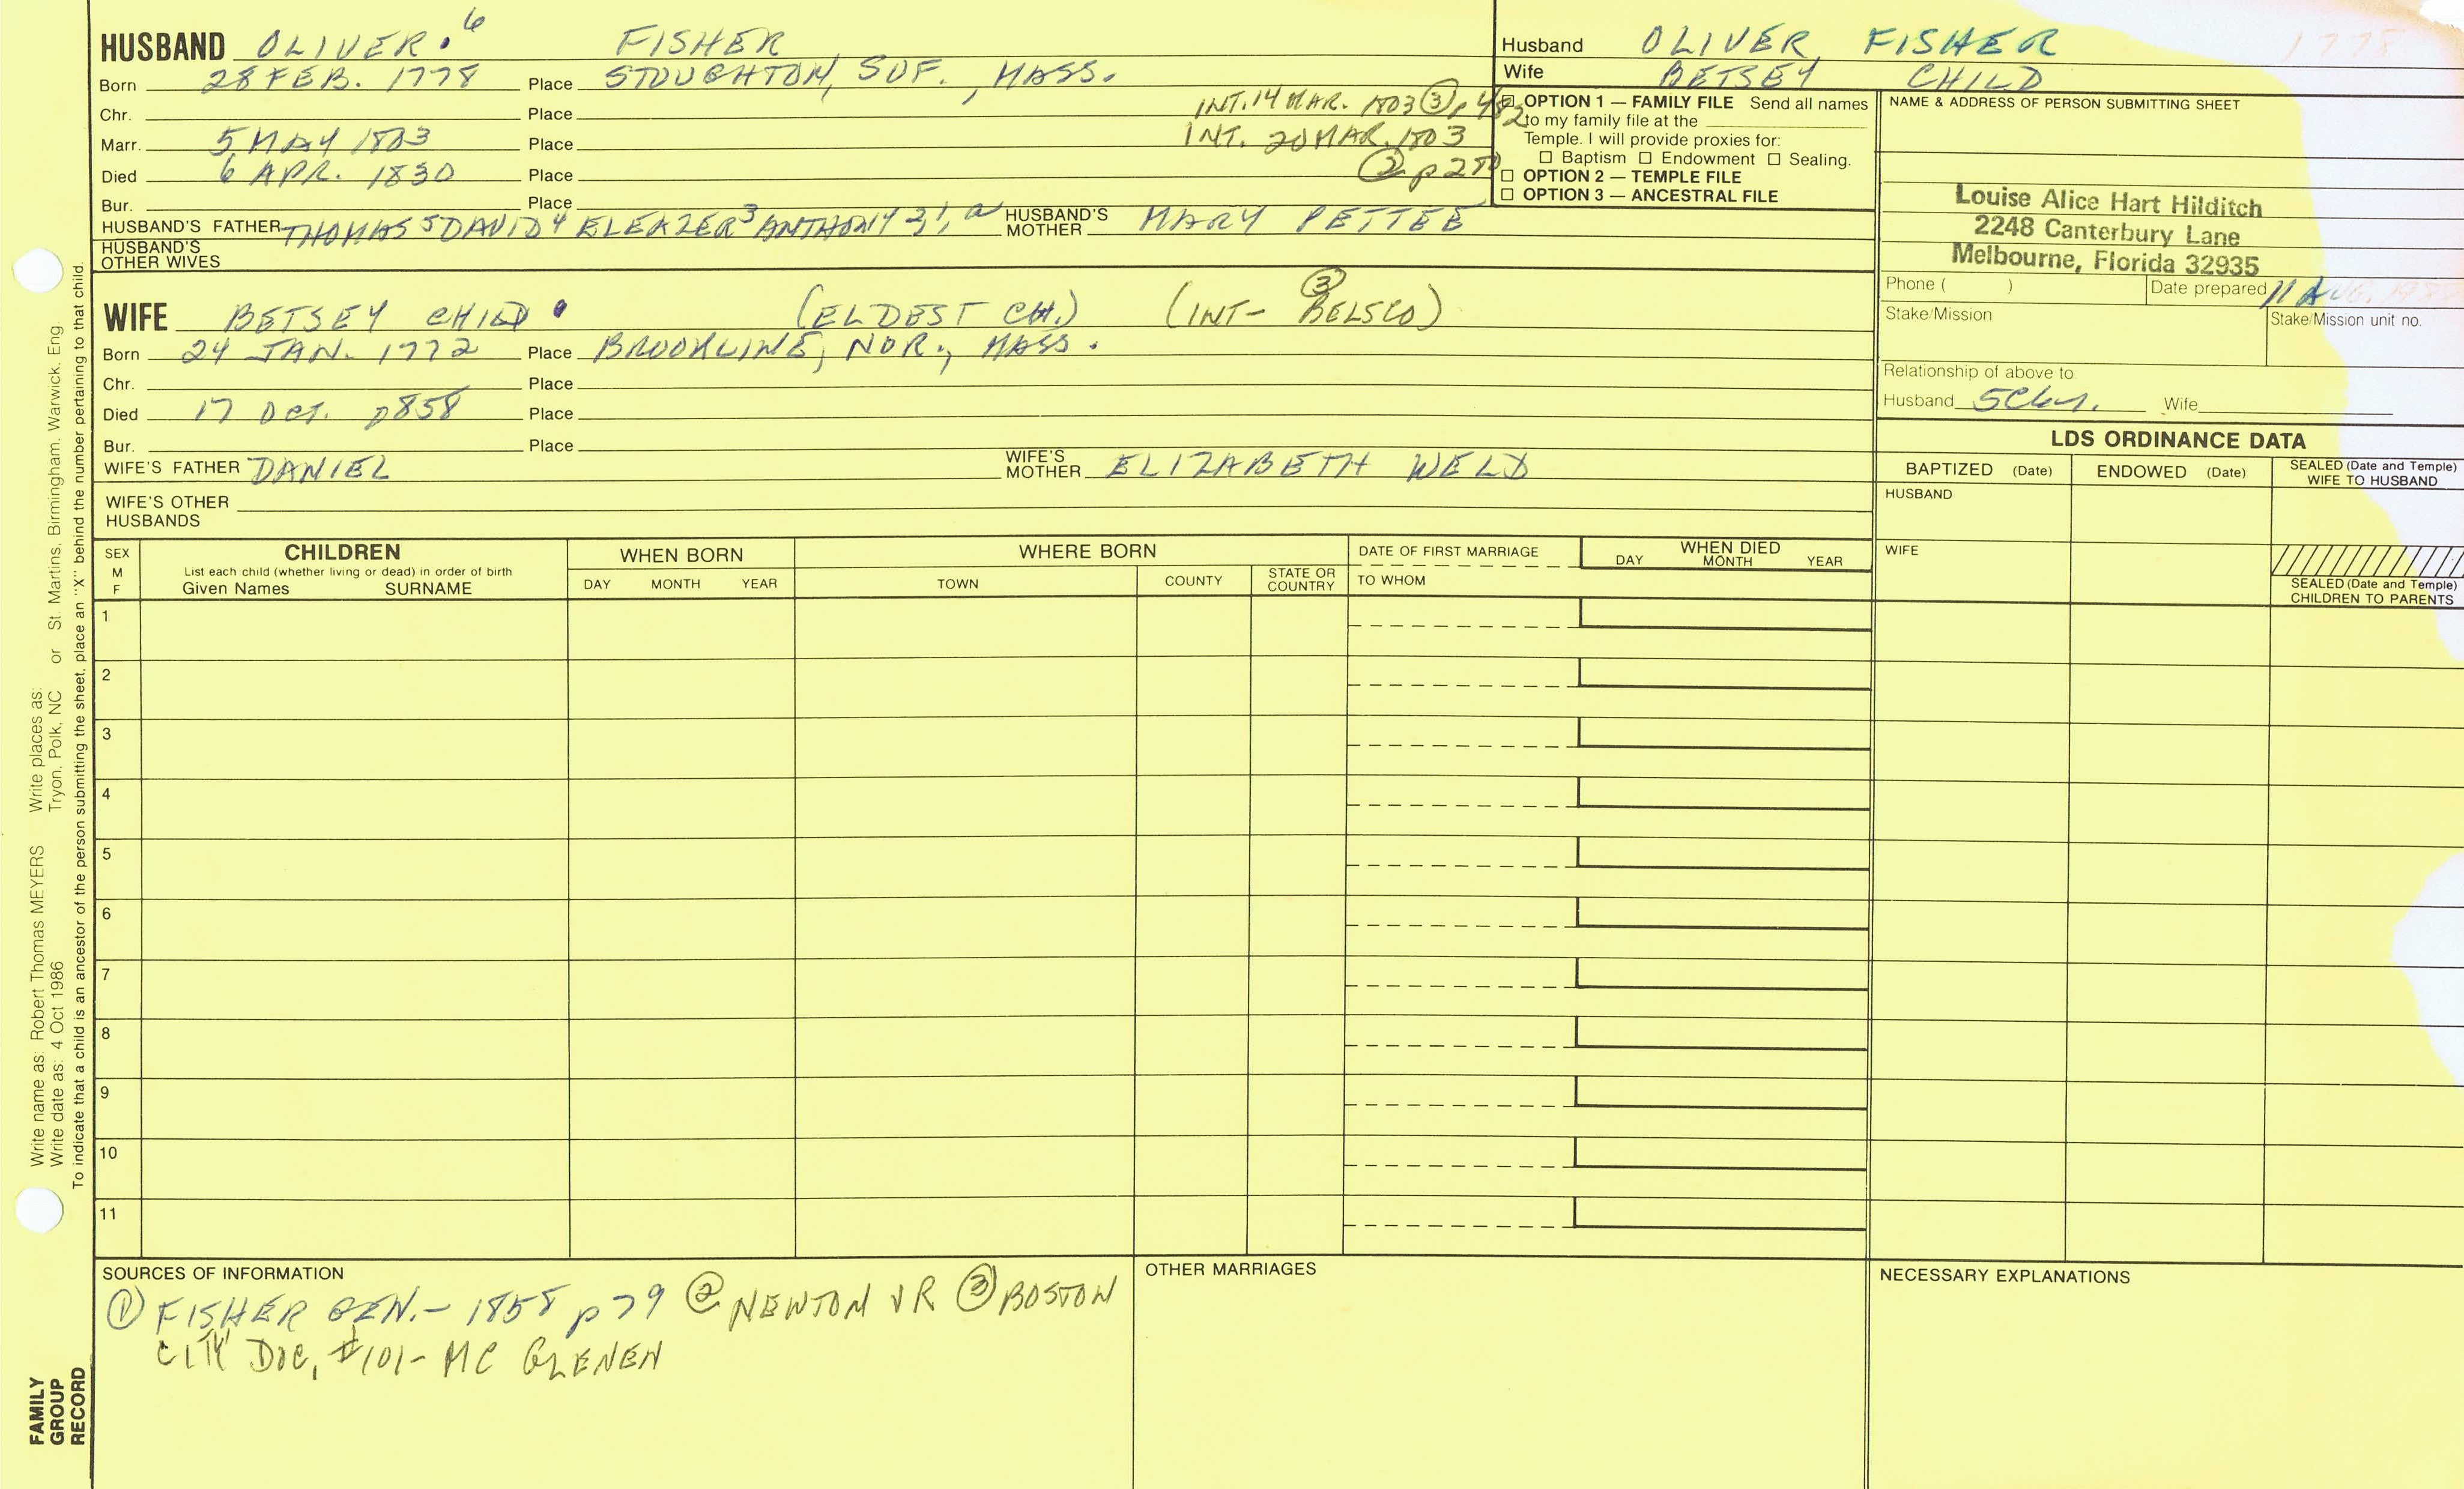 HUSBAND OLIVER.⁶ FISHER
Born 28 FEB. 1778 Place STOUGHTON, SUF., MASS.
Chr. Place INT. 14 MAR. 1803 ③ p 482
Marr. 5 MAY 1803 Place INT. 20 MAR. 1803
Died 6 APR. 1830 Place ② p 270
Bur. Place
HUSBAND'S FATHER THOMAS⁵ DAVID⁴ ELEAZER³ ANTHONY 2, 1, a HUSBAND'S MOTHER MARY PETTEE
HUSBAND'S OTHER WIVES
WIFE BETSEY CHILD . (ELDEST CH.) (INT- ③ BELSCO)
Born 24 JAN. 1772 Place BROOKLINE, NOR., MASS.
Chr. Place
Died 17 OCT. 1858 Place
Bur. Place
WIFE'S FATHER DANIEL WIFE'S MOTHER ELIZABETH WELD
WIFE'S OTHER HUSBANDS
Husband OLIVER FISHER 1778
Wife BETSEY CHILD
☐ OPTION 1 — FAMILY FILE Send all names
to my family file at the
Temple. I will provide proxies for:
☐ Baptism ☐ Endowment ☐ Sealing.
☐ OPTION 2 — TEMPLE FILE
☐ OPTION 3 — ANCESTRAL FILE
NAME & ADDRESS OF PERSON SUBMITTING SHEET
Louise Alice Hart Hilditch
2248 Canterbury Lane
Melbourne, Florida 32935
Phone ( ) Date prepared 11 AUG.
Stake/Mission Stake/Mission unit no.
Relationship of above to
Husband 5C6y1. Wife
LDS ORDINANCE DATA
BAPTIZED (Date) ENDOWED (Date) SEALED (Date and Temple) WIFE TO HUSBAND
HUSBAND
WIFE
SEALED (Date and Temple) CHILDREN TO PARENTS
SEX M F
CHILDREN
List each child (whether living or dead) in order of birth
Given Names SURNAME
WHEN BORN
DAY MONTH YEAR
WHERE BORN
TOWN COUNTY STATE OR COUNTRY
DATE OF FIRST MARRIAGE
TO WHOM
WHEN DIED
DAY MONTH YEAR
1
2
3
4
5
6
7
8
9
10
11
SOURCES OF INFORMATION
① FISHER GEN.- 1858 p 79 ② NEWTON VR ③ BOSTON
CITY DOC, #101- MC GLENEN
OTHER MARRIAGES
NECESSARY EXPLANATIONS
Write name as: Robert Thomas MEYERS Write places as:
Write date as: 4 Oct 1986 Tryon, Polk, NC or St. Martins, Birmingham, Warwick, Eng.
To indicate that a child is an ancestor of the person submitting the sheet, place an "X" behind the number pertaining to that child.
FAMILY
GROUP
RECORD